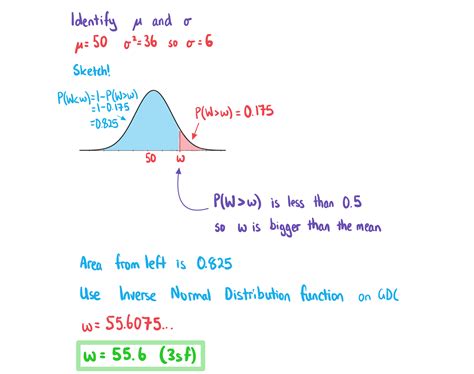 Identify μ and σ
μ=50 σ²=36 so σ=6
Sketch!
P(W<w)=1-P(W>w)
=1-0.175
=0.825
P(W>w)=0.175
50 w
P(W>w) is less than 0.5
so w is bigger than the mean
Area from left is 0.825
Use Inverse Normal Distribution function on GDC
w=55.6075...
w=55.6 (3sf)